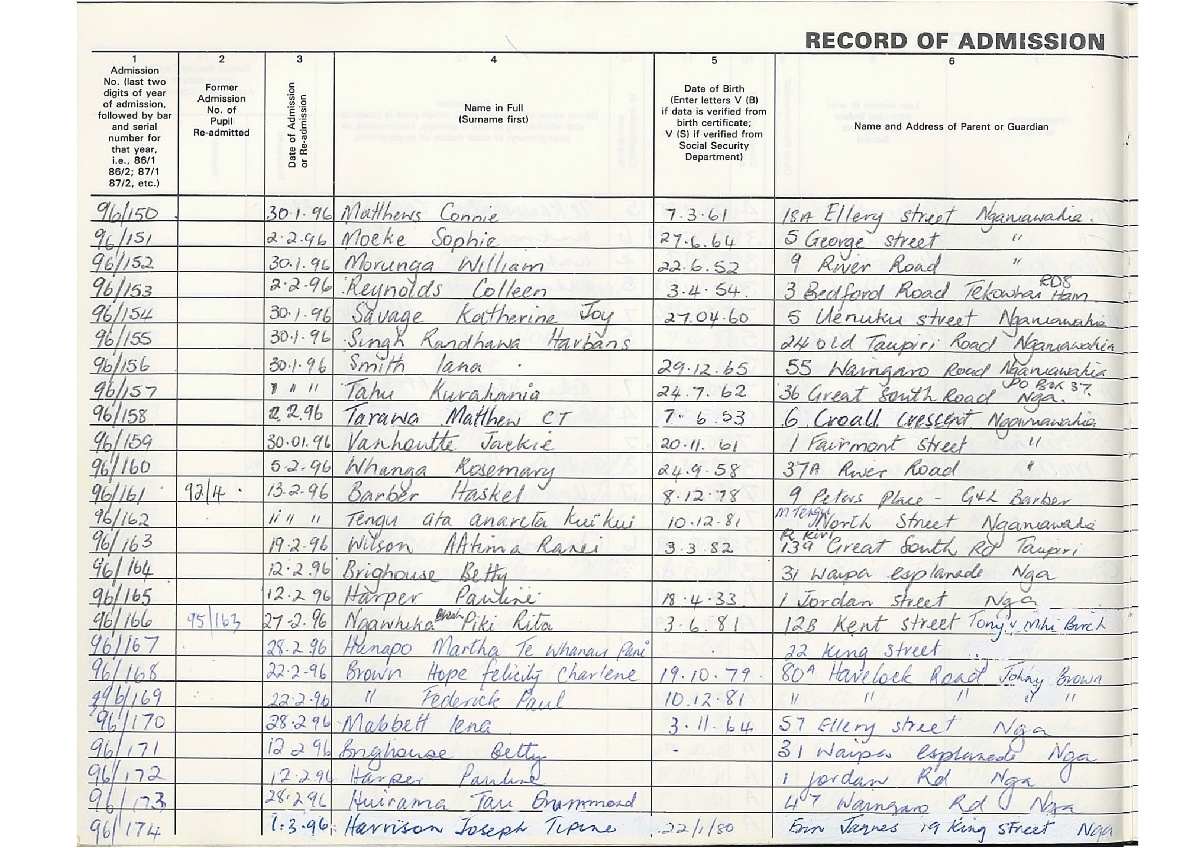 RECORD OF ADMISSION
1 2 3 4 5 6
Admission No. (last two digits of year of admission, followed by bar and serial number for that year, i.e., 86/1 86/2; 87/1 87/2, etc.)
Former Admission No. of Pupil Re-admitted
Date of Admission or Re-admission
Name in Full (Surname first)
Date of Birth (Enter letters V (B) if data is verified from birth certificate; V (S) if verified from Social Security Department)
Name and Address of Parent or Guardian
96/150 30.1.96 Matthews Connie 7.3.61 15A Ellery street Ngaruawahia.
96/151 2.2.96 Moeke Sophie 27.6.64 5 George street "
96/152 30.1.96 Morunga William 22.6.52 9 River Road "
96/153 2.2.96 Reynolds Colleen 3.4.54. 3 Bedford Road Tekowhai RD8 Ham
96/154 30.1.96 Savage Katherine Joy 27.04.60 5 Uenuku street Ngaruawahia
96/155 30.1.96 Singh Randhawa Harbans 24 Old Taupiri Road Ngaruawahia
96/156 30.1.96 Smith Iana 29.12.65 55 Waingaro Road Ngaruawahia
96/157 " " " Tahu Kurahania 24.7.62 36 Great South Road Nga. PO Box 37.
96/158 2.2.96 Tarawa Matthew CT 7.6.53 6 Croall Crescent Ngaruawahia
96/159 30.01.96 Vanhoutte Jackie 20.11.61 1 Fairmont street "
96/160 5.2.96 Whanga Rosemary 24.9.58 37A River Road "
96/161 92/4 13.2.96 Barber Haskel 8.12.78 9 Peters place - G&L Barber
96/162 " " " Tengu ata anareta Kuikui 10.12.81 M Tengu North Street Ngaruawahia
96/163 19.2.96 Wilson 3.3.82 139 Great South Rd Taupiri
96/164 12.2.96 Brighouse Betty 31 Waipa esplanade Nga
96/165 12.2.96 Harper Pauline 18.4.33 1 Jordan street Nga
96/166 95/163 27.2.96 Ngawhika Birch Piki Rita 3.6.81 12B Kent street Tony & Mihi Birch
96/167 28.2.96 Hunapo Martha Te Whanau Pani 22 King street
96/168 22.2.96 Brown Hope felicity Charlene 19.10.79 80A Havelock Road Johny Brown
96/169 22.2.96 " Federick Paul 10.12.81 " " " " "
96/170 28.2.96 Mabbett Iena 3.11.64 57 Ellery street Nga
96/171 12.2.96 Brighouse Betty - 31 Waipa esplanade Nga
96/172 12.2.96 Harper Pauline 1 Jordan Rd Nga
96/173 28.2.96 Huirama Tau Drummond 47 Waingaro Rd Nga
96/174 1.3.96 Harrison Joseph Tipine 22/1/80 Erin Jaques 19 King street Nga